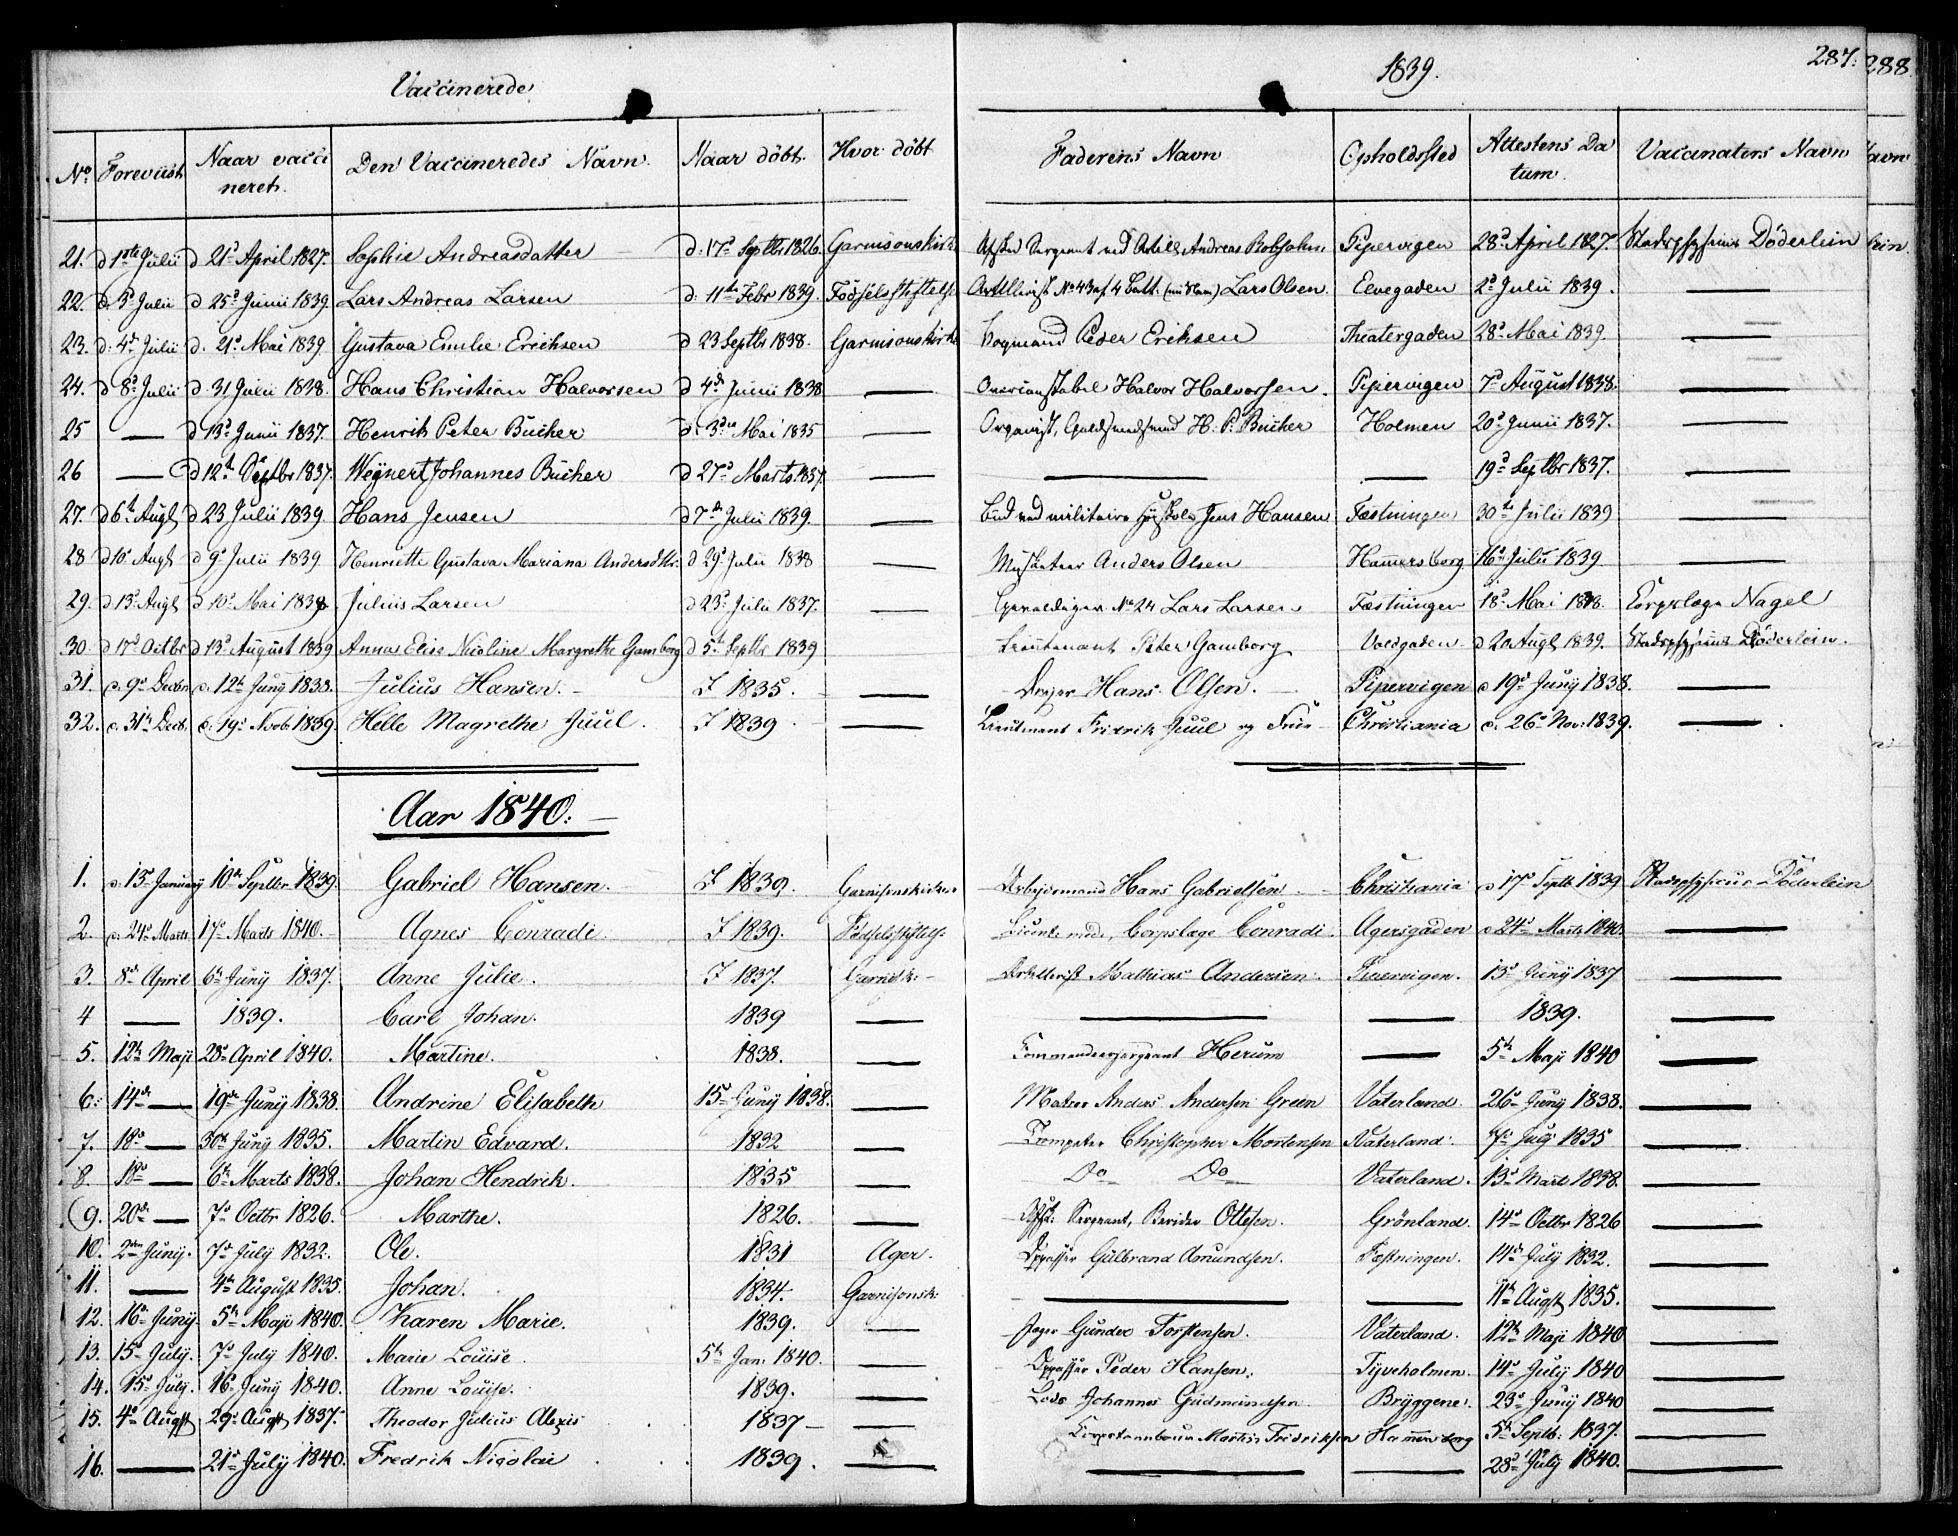 Vaccinerede
1839.
287. 288
No Foreviist Naar vaccineret. Den Vaccineredes Navn. Naar döbt. Hvor döbt Faderens Navn Opholdssted Attestens Datum. Vaccinateurs Navn
21. d 1ste Julii d 21d April 1827. Sophie Andreasdatter d. 17d Septbr 1826. Garnisonskirk Afsked Sergeant ved Artill. Andreas Robsahm. Pipervigen 28d April 1827. Stadsphysicus Döderlein
22. d. 3d Julii d 25d Junii 1839. Lars Andreas Larsen d. 11te Febr 1839. Fødselsstiftelse Artillerist No 43 af 4 Batt. Lars Olsen. Elvegaden 2d Julii 1839. —
23. d. 4de Julii d. 21d Mai 1839 Gustava Emilie Erichsen d 23 Septbr 1838. Garnisonskirke Vognmand Peder Eriksen Theatergaden 28d Mai 1839. —
24. d 8d Julii d. 31 Julii 1838. Hans Christian Halvorsen d 4de Junii 1838 — Overconstabel Halvor Halvorsen. Pipervigen 7d August 1838. —
25 — d 13d Junii 1837. Henrik Peter Bücher d. 3die Mai 1835 — Organist, Guldsmedsvend H. P. Bücher Holmen 20d Junii 1837. —
26 — d 12te Septbr 1837. Weynert Johannes Bücher d 27d Marts 1837 — — — 19d Septbr 1837. —
27. d 6te Augt d 23 Julii 1839. Hans Jensen d 7de Julii 1839. — Bud ved militaire Høiskole Jens Hansen Fæstningen 30te Julii 1839 —
28 d 10d Augt d 9d Julii 1839 Henriette Gustava Mariana Andersdtr. d 29d Julii 1838 — Musketeer Anders Olsen Hammersborg 16de Julii 1839. —
29. d 13d Augt d 10d Mai 1838 Julius Larsen d 23d Julii 1837. — Gevaldiger No 24 Lars Larsen Fæstningen 18d Mai 1838. Corpslæge Nagel
30. d 17d Octbr d 13d August 1839 Anna Elise Nicoline Margrethe Gamborg d 5te Septbr 1839 — Lieutenant Peter Gamborg Voldgaden d 20 Augt 1839. Stadsphysicus Döderlein.
31. d. 9d Decbr d. 12te Juny 1838. Julius Hansen. I 1835. — Hans Olsen. Pipervigen d 19d Juny 1838. —
32. d. 31te Decb. d. 19d Novb. 1839. Helle Magrethe Juul. I 1839 — Lieutenant Fridrik Juul og Frue Christiania d. 26d Nov: 1839. —
Aar 1840:
1. d. 13d January 10de Septbr 1839. Gabriel Hansen. I 1839. Garnisonskirken Arbeidsmand Hans Gabrielsen Christiania d 17d Septb 1839 Stadsphysicus Döderlein
2. d. 24d Marts 17d Marts 1840. Agnes Conradi. I 1839. Födselsstiftels: Corpslæge Conradi. Agersgaden d 24d Marts 1840. —
3. 8de April 6te Juny 1837. Anne Julie. I 1837. Garnisk: Artillerist Mathias Andersen. Pipervigen. 13d Juny 1837 —
4 — 1839. Carl Johan. 1839 — — — 1839. —
5. 12te Maji 28d April 1840. Martine. 1838. — Commandeersergeant Herum — 5te Maji 1840 —
6: 14de — 19de Juny 1838. Andrine Elisabeth 15d Juny 1838. — Anders Andersen Green Vaterland. 26d Juny 1838. —
7. 18d — 30te Juny 1835. Martin Edvard. 1832 — Trompeter Christopher Mortensen Vaterland. 7d July 1835 —
8. 18d — 6te Marts 1838. Johan Hendrik. 1835 — Do Do Vaterland. 13d Marts 1838. —
9. 20de — 7d Octbr 1826. Marthe. 1826. — Afsk: Sergeant, Berider Ottesen. Grönland. 14d Octbr 1826 —
10. 2den Juny. 7d July 1832. Ole. 1831 Ager. Oppasser Gulbrand Amundsen. Fæstningen. 14de July 1832. —
11. — 4de August 1835. Johan. 1834. Garnisonsk: — — 11te Augst 1835. —
12. 16d Juny. 5te Maji 1840. Karen Marie. 1839. — Jæger Gunder Torstensen. Vaterland. 12te Maji 1840 —
13. 15d July. 7d July 1840. Marie Louise. 5te Jan: 1840. — Oppasser Peder Hansen. Tyveholmen. 14d July 1840 —
14. 15d July. 16d Juny 1840. Anne Louise. 1839. — Lods Johannes Gudmundsen Bryggene. 23d Juny 1840 —
15. 4d Augst 29d Augst 1837. Theodor Julius Alexis 1837 — Corpstambour Martin Fredriksen Hammersborg 5te Septb: 1837. —
16. — 21d July 1840. Fredrik Nigolai 1839. — — — 28d July 1840. —